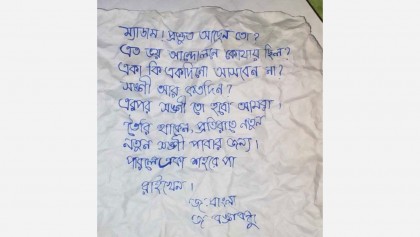 ম্যাডাম! প্রস্তুত আছেন তো?
এত ভয় আন্দোলনে কোথায় ছিল?
একা কি একদিনো আসবেন না?
সঙ্গী আর কতদিন?
এরপর সঙ্গী তো হবো আমরা।
তৈরি থাকেন, প্রতিরাতে নতুন
নতুন সঙ্গী পাবার জন্য।
পারলে একা শহরে পা
রাইখেন।
জ. বাংলা
জ. বঙ্গবন্ধু